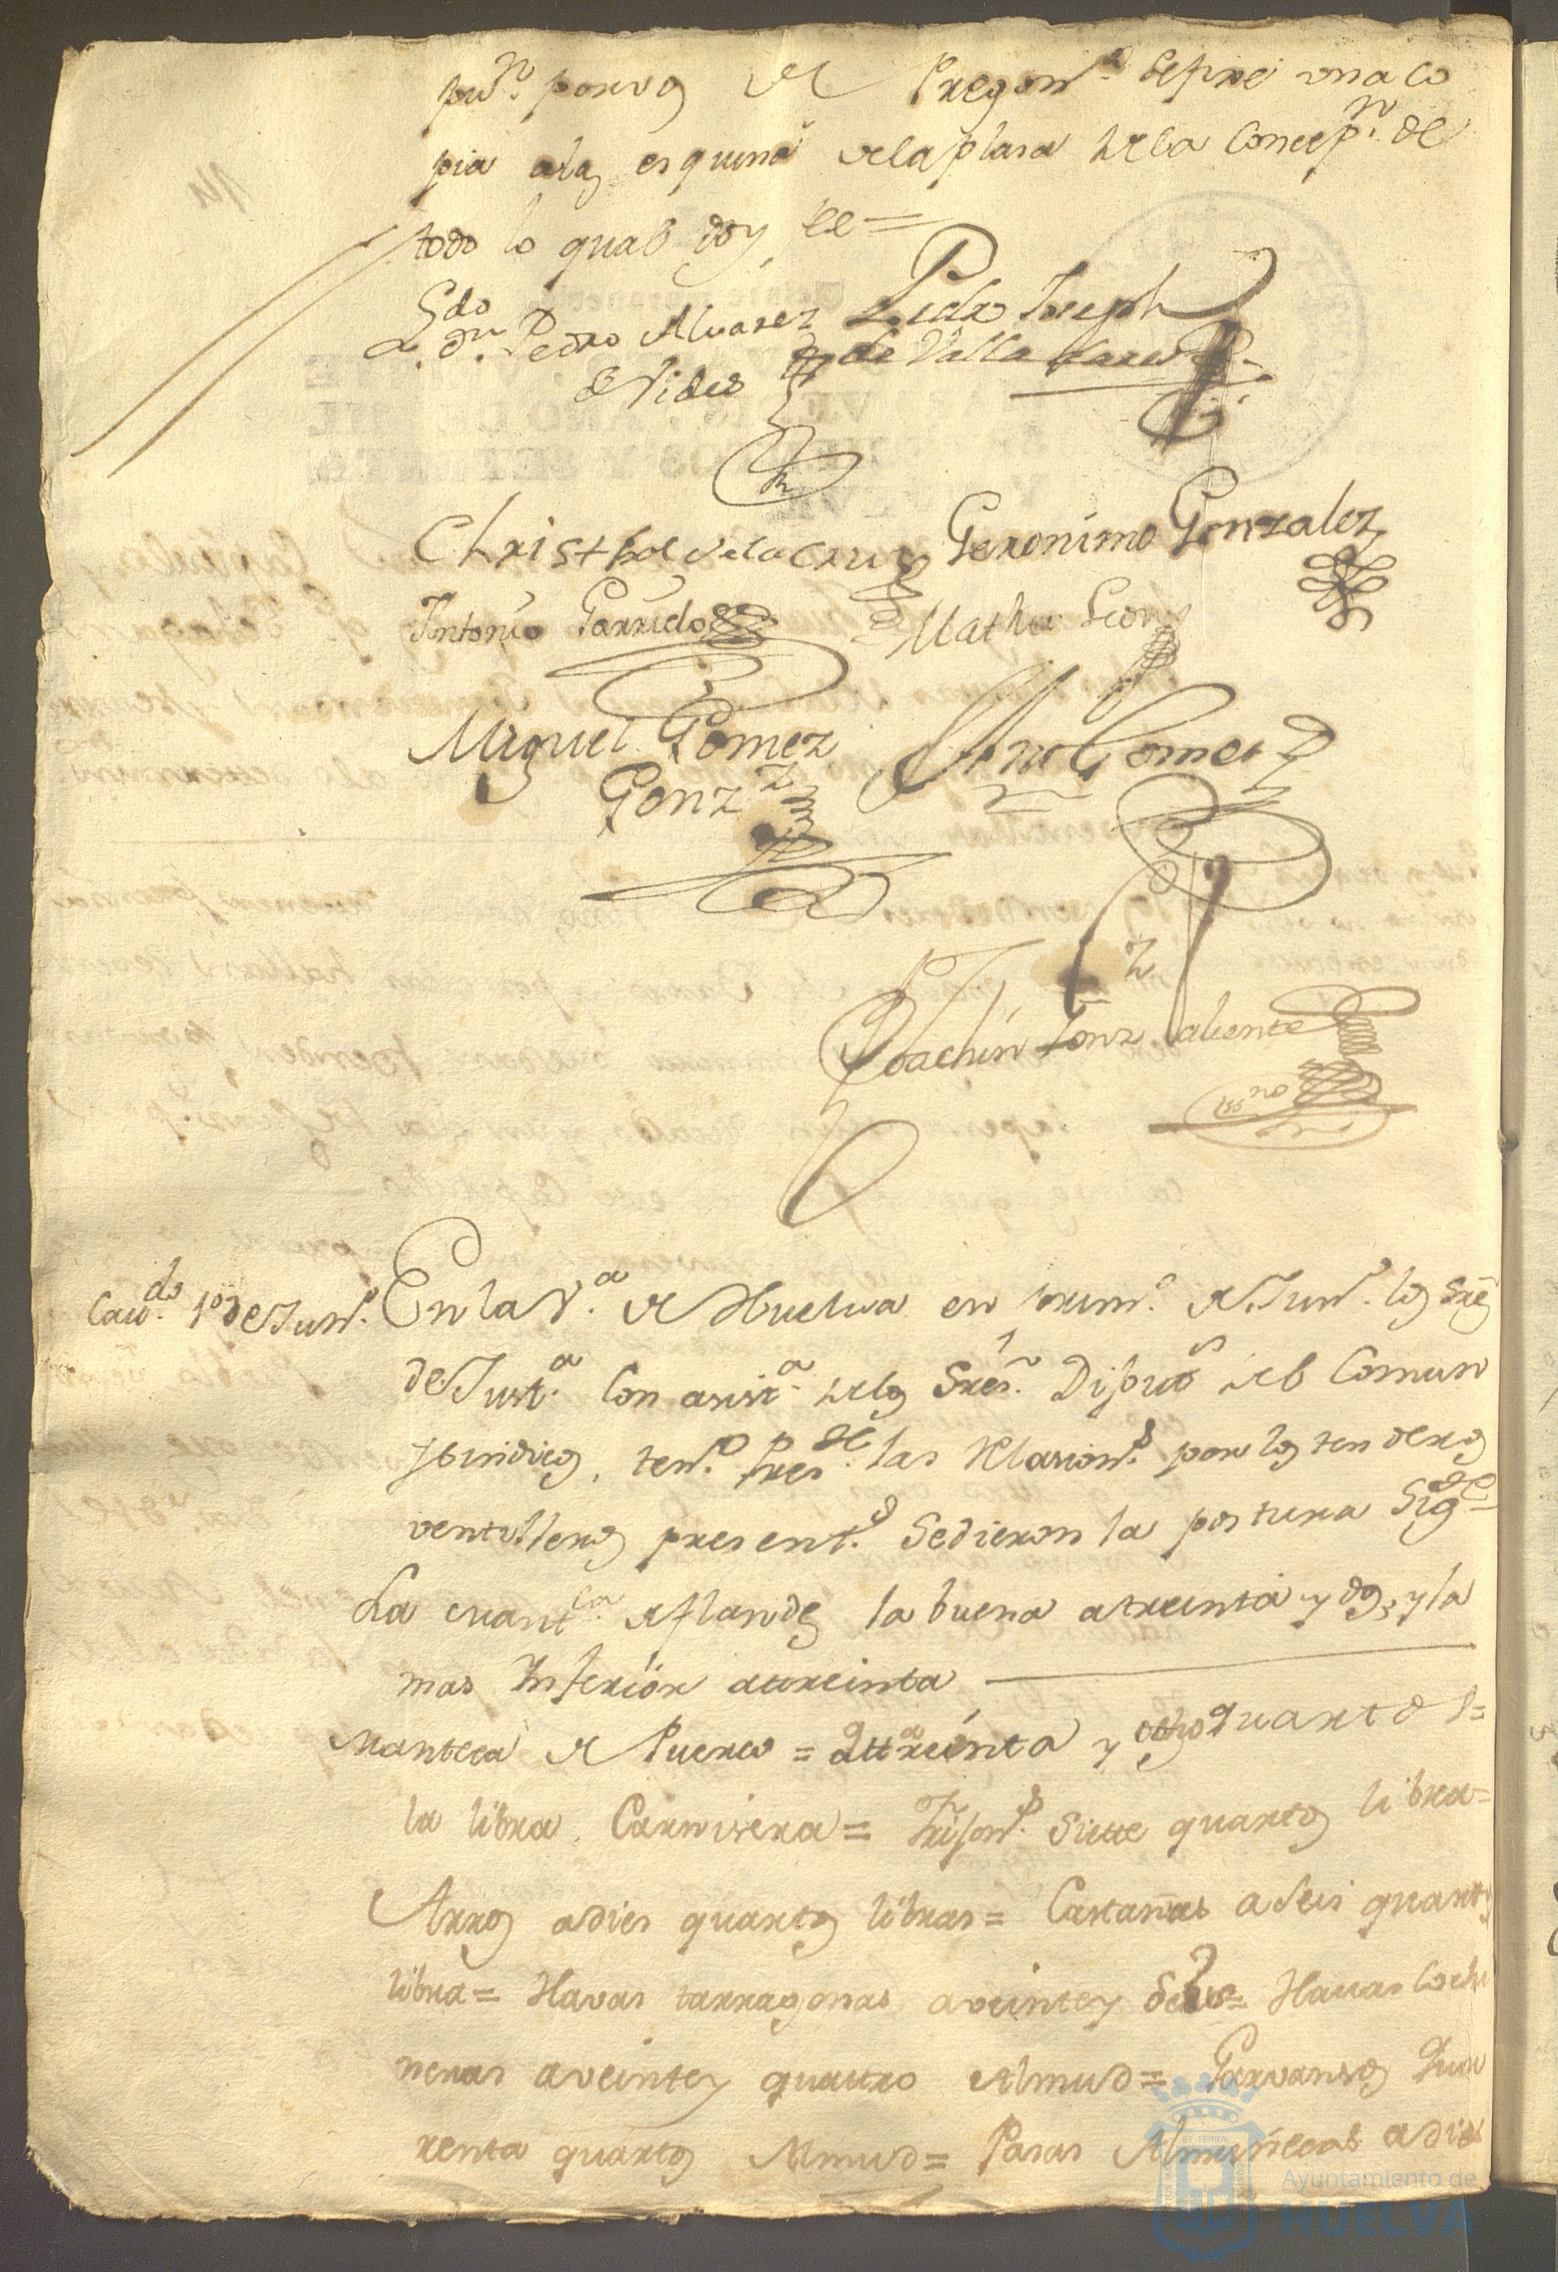 pu.n por vos de Pregon.o se fixó una co
pia a las esquina de la plasa de la Concep.n de
todo lo qual doy fee =
L.do d.n Pedro Alvarez
de Vides
Pedro Joseph
de Valladares
Christhol de la Cruz
Geronimo Gonzalez
Antonio Garrido
Mathias Leon
Miguel Gomez
Gonz.z
Ant.no Gomez
Joachin Gonz.z Valiente
Ess.no
Cav.do 1.o de Jun.o
En la V.a de Huelva en prim.o de Jun.o los Sres
de Just.a Con asist.a de los Sres. Diput.s del Comun
y Sindico, ten.do pres.te las Relacion.s por los tenderos
ventilleros present.s se dieron la postura Sig.te
La quart.la de flandes la buena a treinta y dos, y la
mas Inferior a treinta
Manteca de Puerco = a treinta y ocho quartos
la libra Carnisera = Frison.s Siette quartos libra =
Arros a dies quartos libras = Castañas a Seis quartos
libra = Havas tarragonas a veinte y = Havas Cochi
neras a veinte y quattro Almud = Garvansos Qua
renta quartos Almud = Pasas Almuñecas a dies
Ayuntamiento de
HUELVA